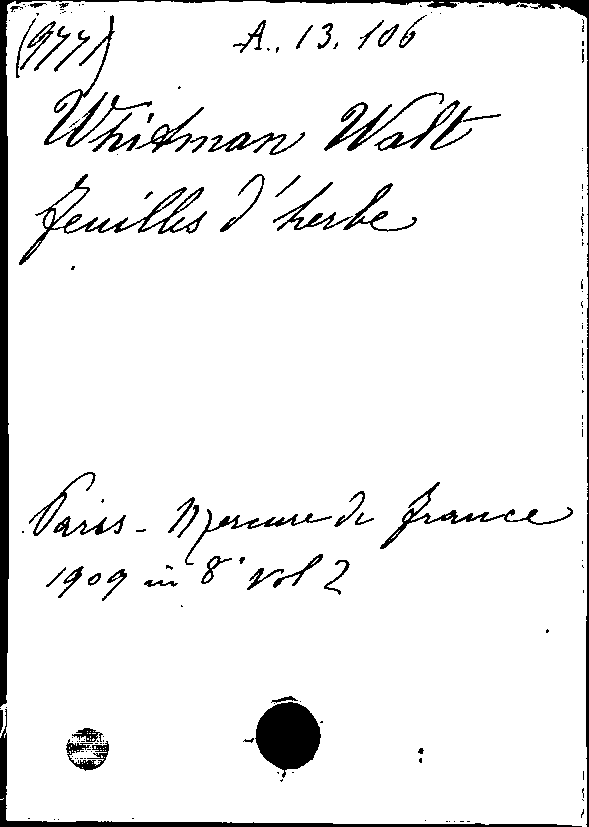 (9771) A. 13. 106
Whitman Walt
feuilles d'herbe
Paris - Mercure de france
1909 in 8° vol 2